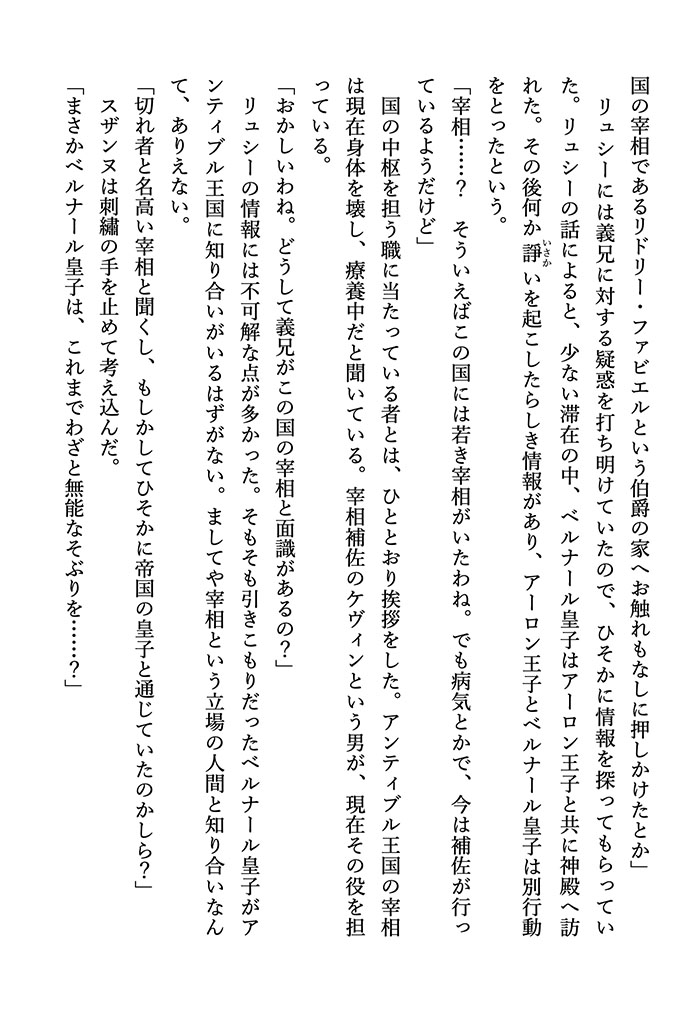 国の宰相であるリドリー・ファビエルという伯爵の家へお触れもなしに押しかけたとか」
　リュシーには義兄に対する疑惑を打ち明けていたので、ひそかに情報を探ってもらってい
た。リュシーの話によると、少ない滞在の中、ベルナール皇子はアーロン王子と共に神殿へ訪
れた。その後何か諍いさかいを起こしたらしき情報があり、アーロン王子とベルナール皇子は別行動
をとったという。
「宰相……？　そういえばこの国には若き宰相がいたわね。でも病気とかで、今は補佐が行っ
ているようだけど」
　国の中枢を担う職に当たっている者とは、ひととおり挨拶をした。アンティブル王国の宰相
は現在身体を壊し、療養中だと聞いている。宰相補佐のケヴィンという男が、現在その役を担
っている。
「おかしいわね。どうして義兄がこの国の宰相と面識があるの？」
　リュシーの情報には不可解な点が多かった。そもそも引きこもりだったベルナール皇子がア
ンティブル王国に知り合いがいるはずがない。ましてや宰相という立場の人間と知り合いなん
て、ありえない。
「切れ者と名高い宰相と聞くし、もしかしてひそかに帝国の皇子と通じていたのかしら？」
　スザンヌは刺繡の手を止めて考え込んだ。
「まさかベルナール皇子は、これまでわざと無能なそぶりを……？」